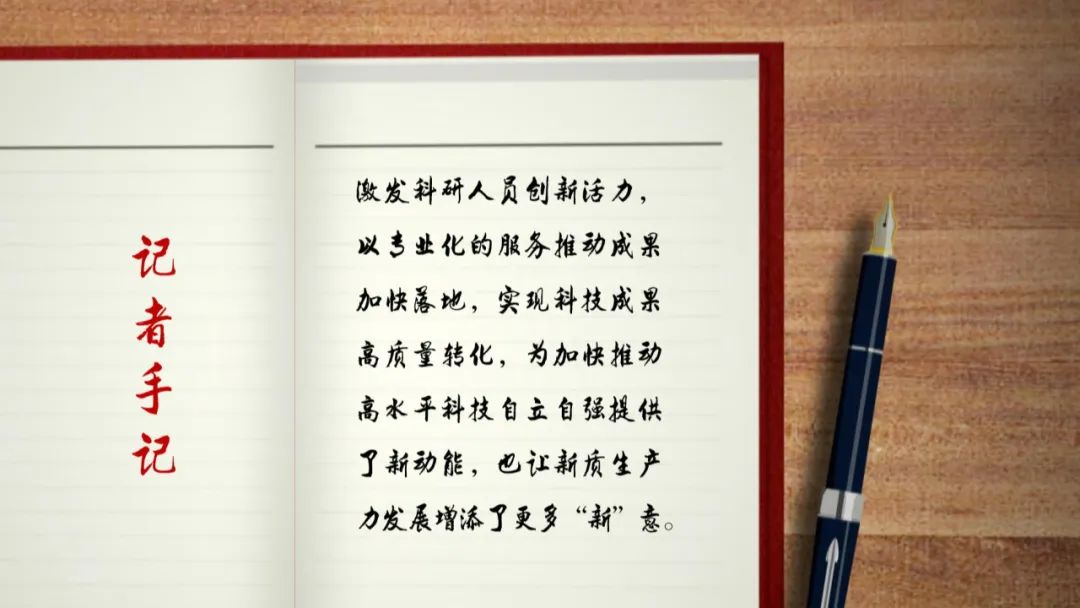 记者手记
激发科研人员创新活力，
以专业化的服务推动成果
加快落地，实现科技成果
高质量转化，为加快推动
高水平科技自立自强提供
了新动能，也让新质生产
力发展增添了更多“新”意。